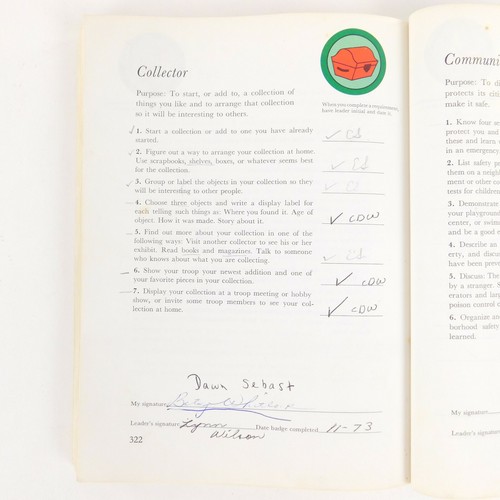 Collector
Purpose: To start, or add to, a collection of
things you like and to arrange that collection
so it will be interesting to others.
When you complete a requirement,
have leader initial and date it.
✓ 1. Start a collection or add to one you have already
started.
✓ CS
✓ 2. Figure out a way to arrange your collection at home.
Use scrapbooks, shelves, boxes, or whatever seems best
for the collection.
✓ CS
✓ 3. Group or label the objects in your collection so they
will be interesting to other people.
✓ CS
4. Choose three objects and write a display label for
each telling such things as: Where you found it. Age of
object. How it was made. Story about it.
✓ CDW
5. Find out more about your collection in one of the
following ways: Visit another collector to see his or her
exhibit. Read books and magazines. Talk to someone
who knows about what you are collecting.
✓ CS
6. Show your troop your newest addition and one of
your favorite pieces in your collection.
✓ CDW
7. Display your collection at a troop meeting or hobby
show, or invite some troop members to see your col-
lection at home.
✓ CDW
Dawn Sebast
My signature
Leader's signature Lynn Wilson Date badge completed 11-73
322
Communi
Purpose: To di
protects its citi
make it safe.
1. Know four se
protect you and
these and learn
in an emergency.
2. List safety p
them on a neigh
ment or other co
tests for children
3. Demonstrate
your playground
center, or swim
and be a good e
4. Describe an
erty, and discuss
have been preve
5. Discuss: The
by a stranger. S
erators and larg
poison control c
6. Organize an
borhood safety
learned.
My signature
Leader's signat